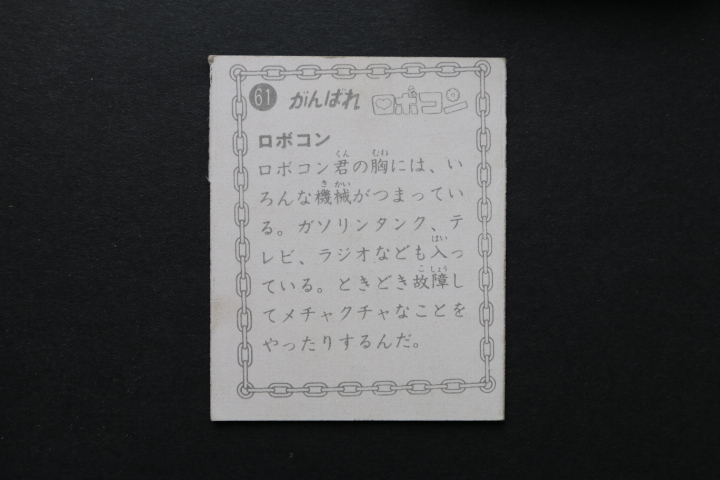 61 がんばれ ロボコン
ロボコン
ロボコン君の胸には、い
ろんな機械がつまってい
る。ガソリンタンク、テ
レビ、ラジオなども入っ
ている。ときどき故障し
てメチャクチャなことを
やったりするんだ。